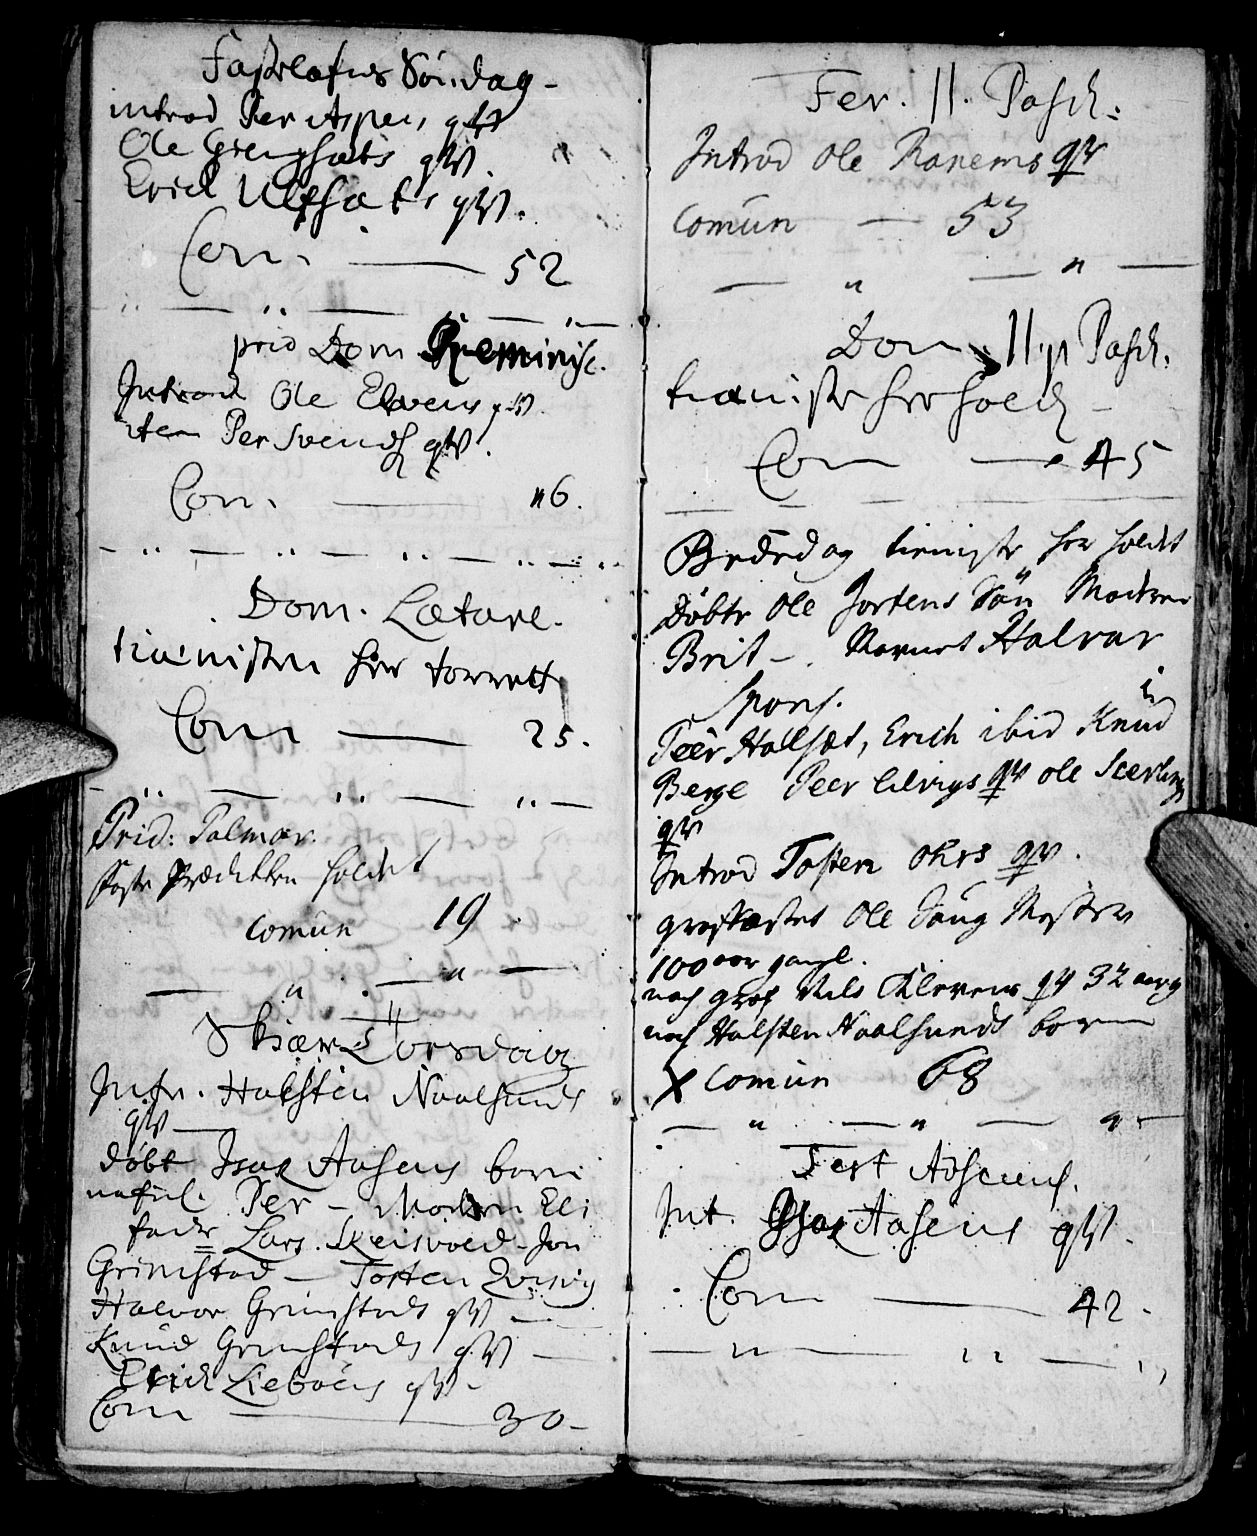 Fastelafns Söndag -
introd Per Aspens qv
Ole Grengsæts qv.
Erich Ulfsæts qv.
Com. — 52
prid Dom Reminisc.
Introd Ole Elvens qv.
item Per Svends qv.
Com. — 46.
Dom. Lætare.
tienisten her forrett
Com — 25.
Prid: Palmar.
faste Prædikken holdet
Comun 19.
Skiær Torsdag
Intr. Halsten Naalsunds
qv —
döbt Isax Aasens barn
nafnl. Per - Modren Eli
fadr Lars. Skeisvoed - Jon
Grimstad — Tosten
Halvor Grimstads qv —
Knud Grimstads qv —
Erich Lieböens qv -
Com — 30 -
Fer. II. Pasch:
Introd Ole Ranems qv
Comun — 53
Dom. II. p Pasch.
tieniste her holdt -
Com — 45
Bededag tieniste her holdt
döbte Ole Jortens Sön Modren
Brit - . Navnet Halvar
Spons.
Peer Halsæt, Erich ibid Knud
Berge Peer qv Ole
qv
Introd Tosten Ohrs qv.
grafkastet Ole Saug Mester
100 aar gaml.
noch graf Nils Klevens qv 32 aarg
noch Halsten Naalsunds barn
X Comun 68
Fest Adscens.
Int. Isax Aasens qv.
Com — 42 -